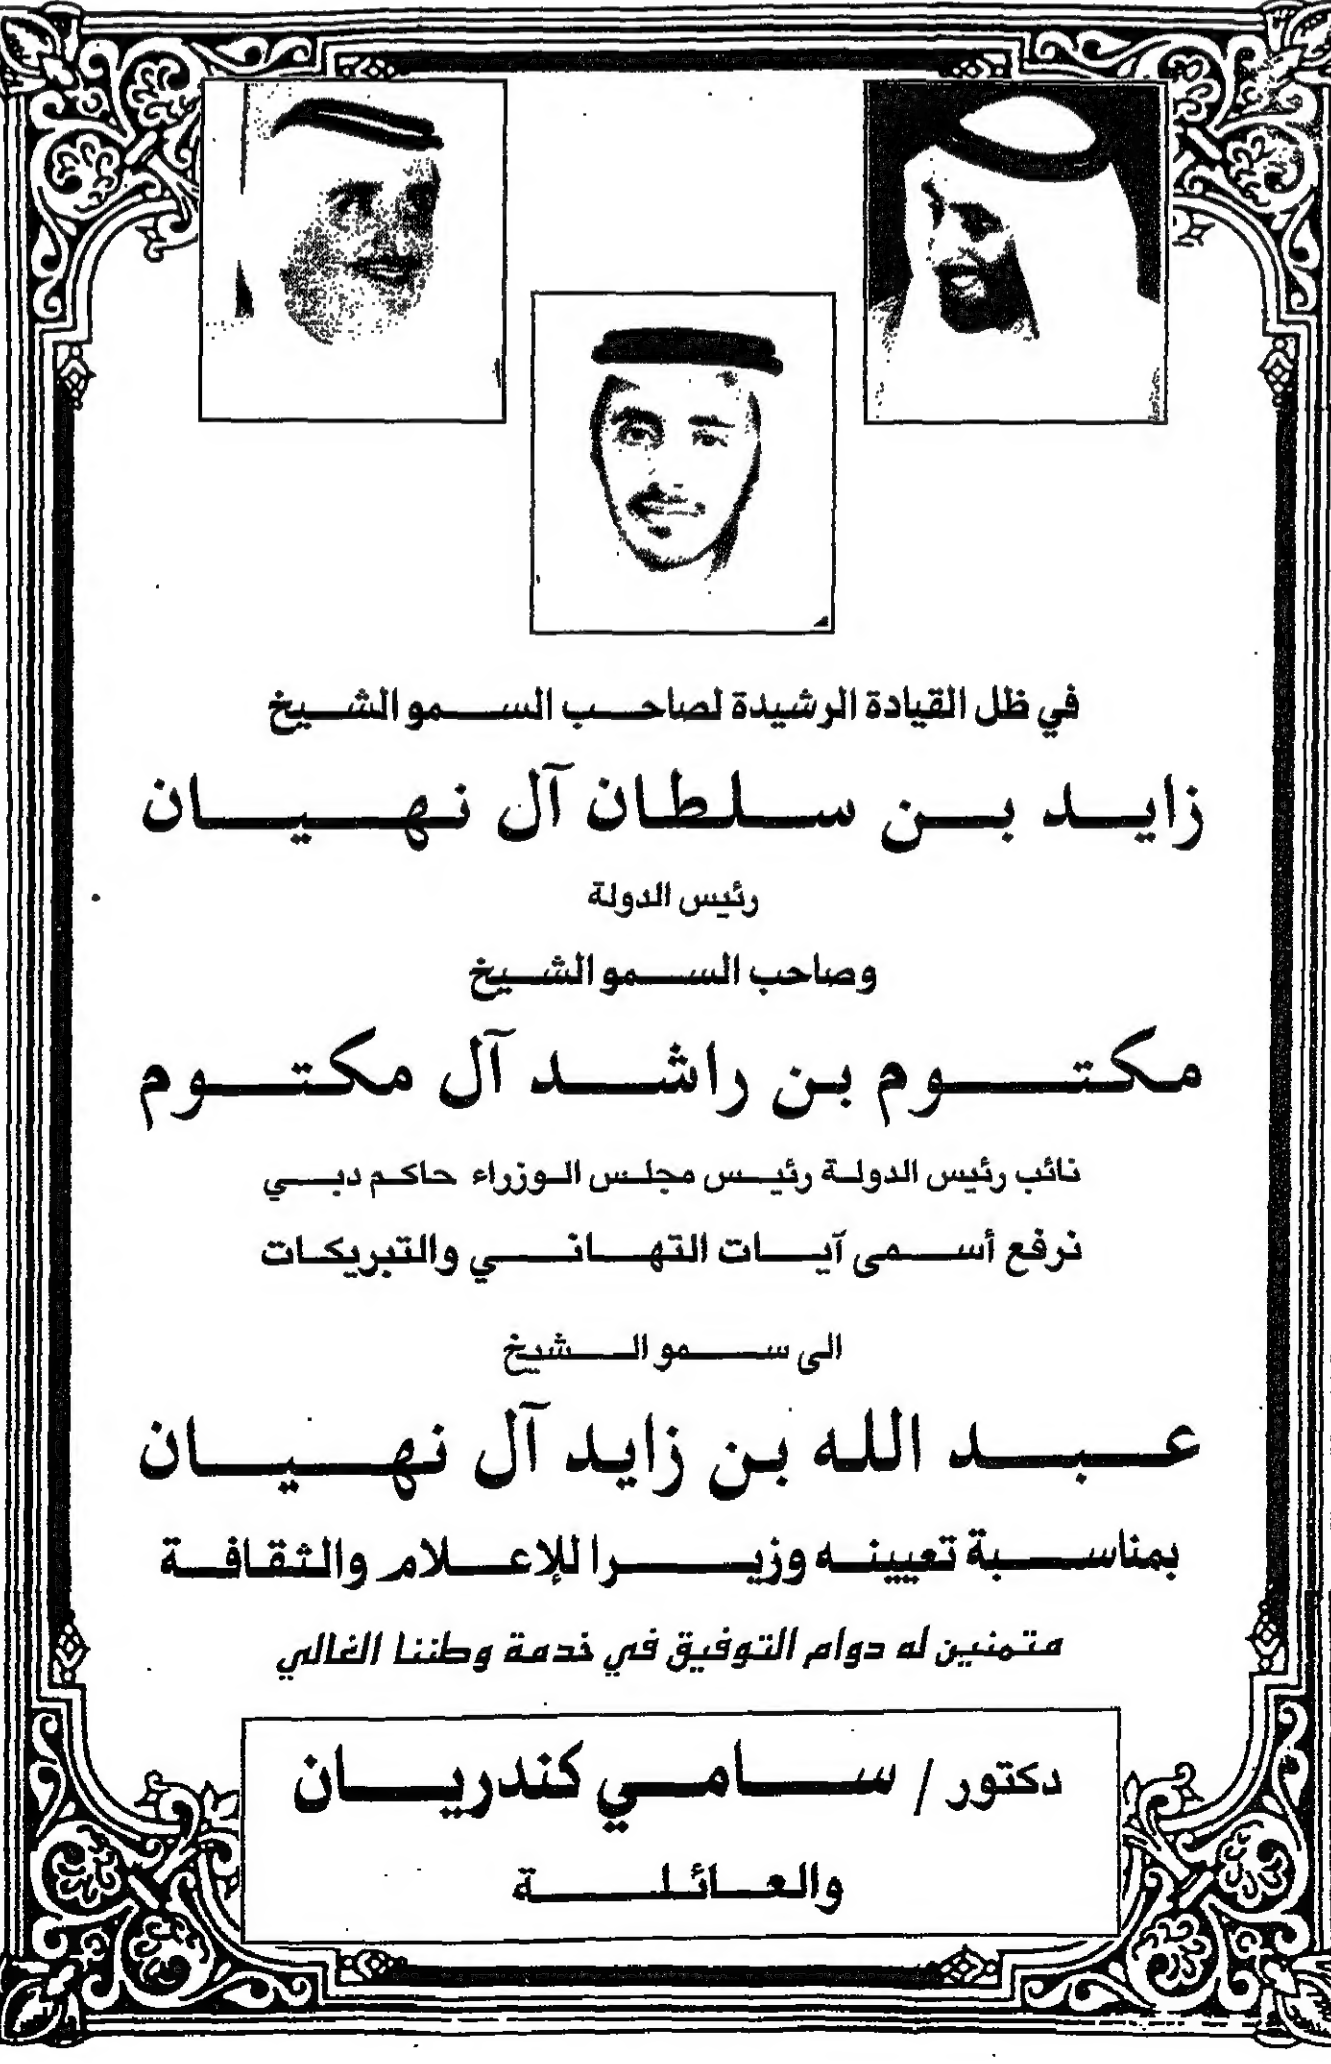 في ظل القيادة الرشيدة لصاحب السمو الشيخ
زايد بن سلطان آل نهيان
رئيس الدولة
وصاحب السمو الشيخ
مكتوم بن راشد آل مكتوم
نائب رئيس الدولة رئيس مجلس الوزراء حاكم دبي
نرفع أسمى آيات التهاني والتبريكات
الى سمو الشيخ
عبد الله بن زايد آل نهيان
بمناسبة تعيينه وزيرا للإعلام والثقافة
متمنين له دوام التوفيق في خدمة وطننا الغالي
دكتور / سامي كندريان
والعائلة